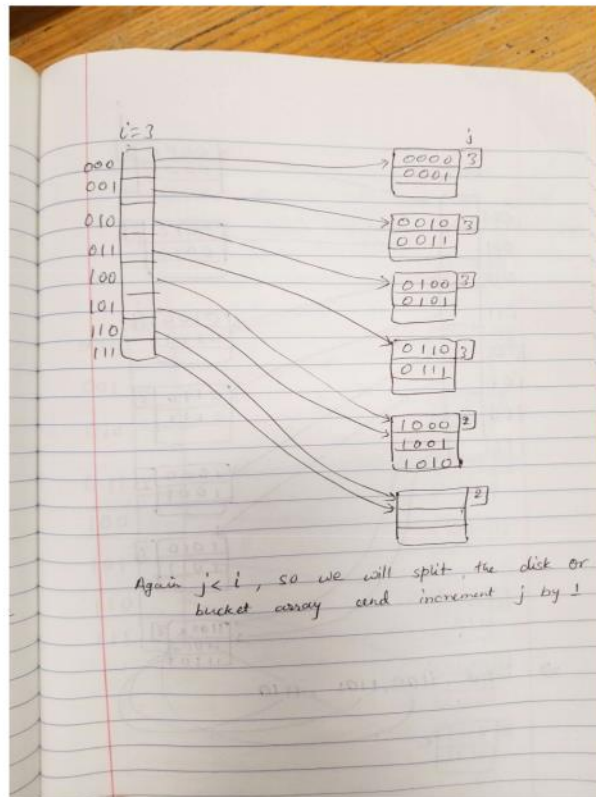 i=3
j
000
001
010
011
100
101
110
111
0000 3
0001
0010 3
0011
0100 3
0101
0110 3
0111
1000 2
1001
1010
2
Again j< i, so we will split the disk or
bucket array and increment j by 1